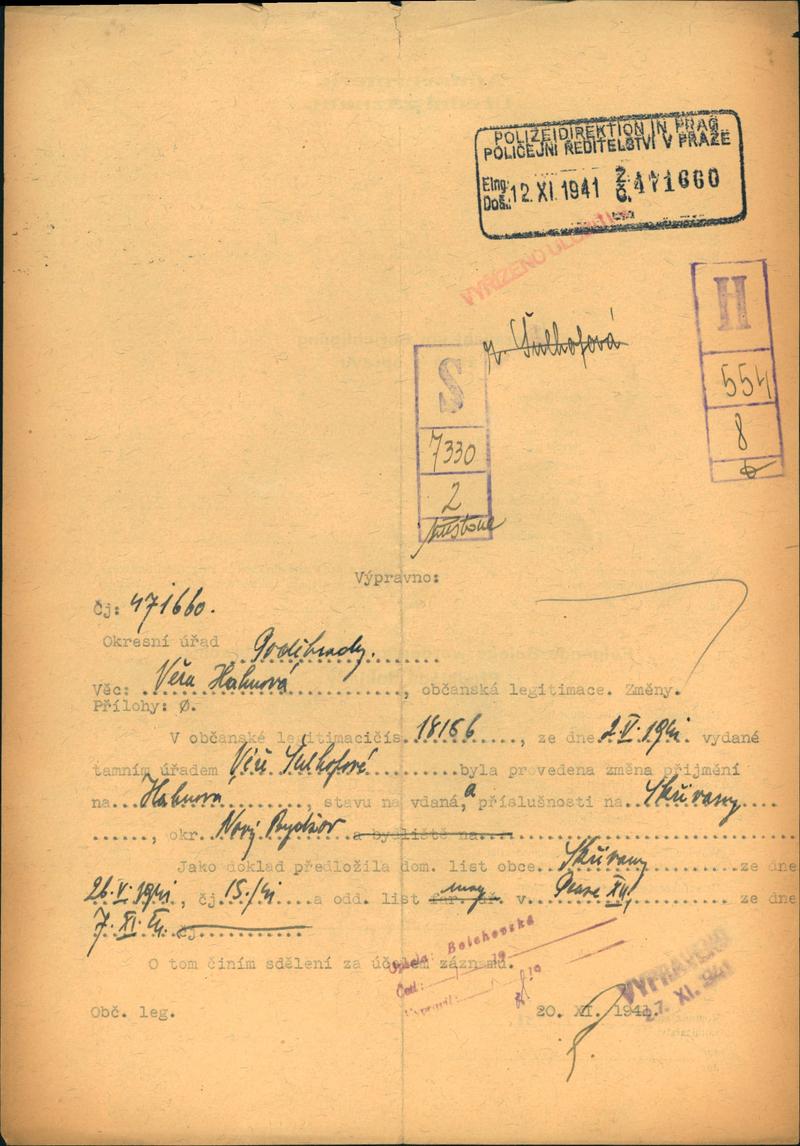 POLIZEIDIREKTION IN PRAG
POLICEJNÍ ŘEDITELSTVÍ V PRAZE
Eing.
Doš. 12. XI. 1941 Z. Č. 471660
VYŘÍZENO
Šulhofová
H
554
8
S
7330
2
Výpravno:
Čj: 471660.
Okresní úřad Poděbrady.
Věc: Věra Hahnová, občanská legitimace. Změny.
Přílohy: Ø.
V občanské legitimacičís. 18186, ze dne 2.V.1941 vydané
tamním úřadem Věře Šulhofové byla provedena změna přijmění
na Hahnova, stavu na vdaná, a příslušnosti na Skřivany
, okr. Nový Bydžov a bydliště na
Jako doklad předložila dom. list obce Skřivany ze dne
26.V.1941, čj 15/41 a odd. list v Praze XII, ze dne
7. XI. 41. čj
O tom činím sdělení za účelem záznamu.
Opsala: Bolehovská
Četl:
Vypravil:
VYPRAVENO
27. XI. 1941
Obč. leg. 20. XI. 1941.